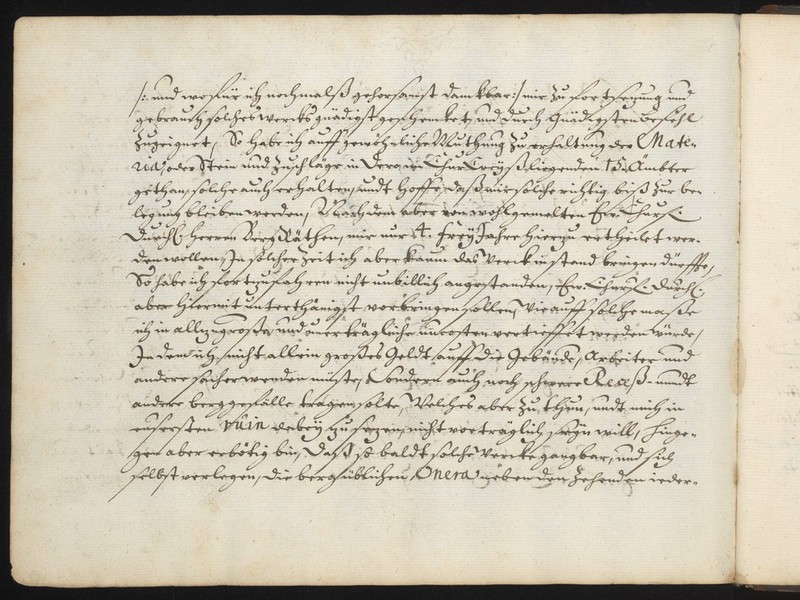 /: und wofür ich nochmalß gehorsambst danckbar :/ mir zu fortsezung und
gebrauch solches wercks gnädigst geschencket, und durch gnädigsten befehl
zugeignet, So habe ich auff gewöhnliche Muthung zu erhaltung der Mate-
ria, oder Stein und Zuschläge in dero im Chur Creyß liegenden 15. Ämbter
gethan, solche auch erhalten, undt hoffe, daß mir solche richtig biß zur be-
legung bleiben werden, Nach dem aber von wohlgemelten Ew. Churf.
Durchl. Herren Berg Räthen, mir nur 4. Frey Jahre hierzu ertheilet wer-
den wollen, In solcher Zeit ich aber kaum das Werck in stand bringen dürffte,
So habe ich fortzufahren nicht unbillich angestanden, Ew. Churf. Durchl.
aber hiermit unterthänigst vorbringen sollen, Wie auff solche maße
ich in allzugroße, und unerträgliche uncosten vertieffet werden würde,
In dem ich, nicht allein großes Geldt, auff die Gebäude, Arbeiter und
andere sachen wenden müste, Sondern auch noch schwere Receß- undt
andere berggefälle tragen solte, Welches aber zu thun, undt mich in
eusersten ruin dabey zu sezen, nicht vorträglich seyn will, Hinge-
gen aber erbötig bin, daß so baldt solche Wercke gangbar, und sich
selbst verlegen, die bergüblichen Onera neben den Zehenden ieder-